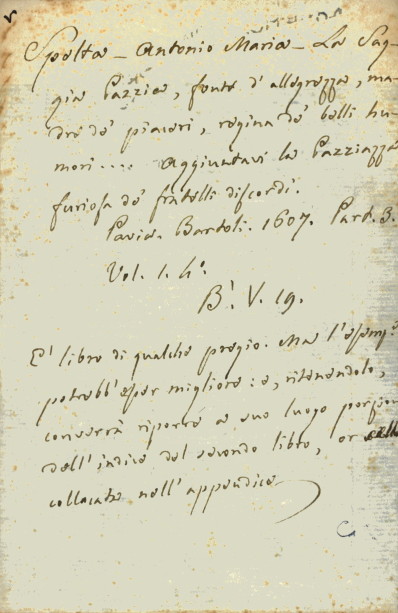 Spelta – Antonio Maria – La Sag-
gia Pazzia, fonte d'allegrezza, ma-
dre de' piaceri, regina de' belli hu-
mori.... Aggiuntavi la Pazziazza
furiosa de' fratelli discordi.
Pavia. Bartoli. 1607. Part. 3.
Vol. 1. 4°.
B'. V. 19.
E' libro di qualche pregio. Ma l'esemp.
potrebb'esser migliore: e, ritenendolo,
converrà riporre a suo luogo porzion
dell'indice del secondo libro, or
collocata nell'appendice